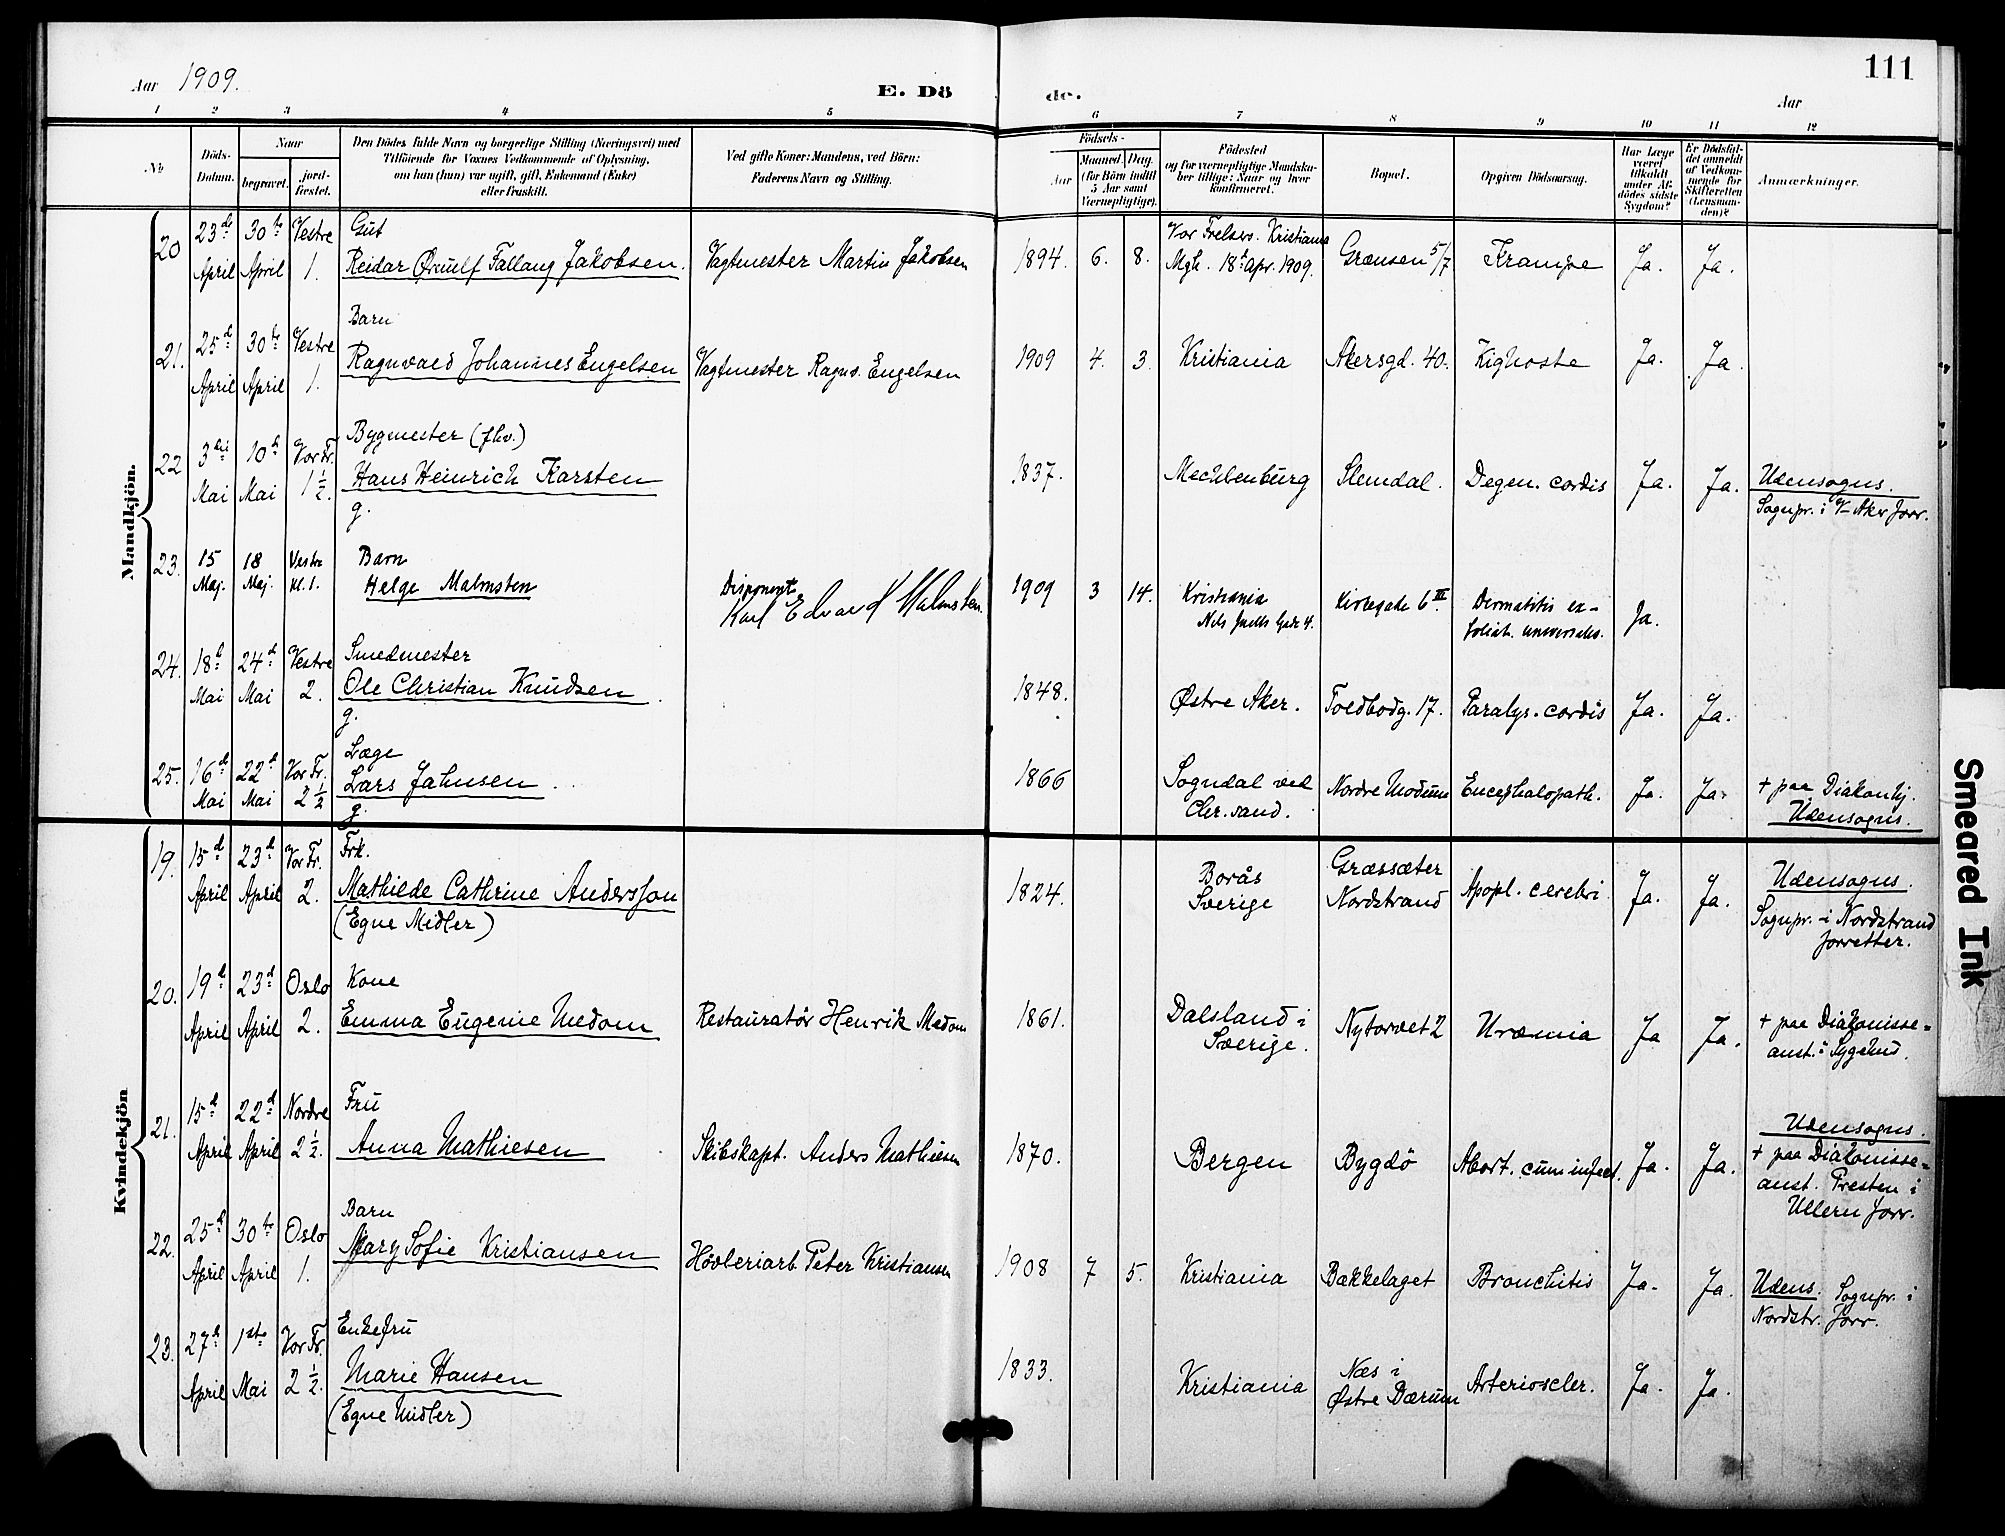 Aar 1909.
E. Dö
de.
Aar
111
1 2 3 4 5 6 7 8 9 10 11 12
No
Döds-
Datum.
Naar
begravet.
jord-
fæstet.
Den Dödes fulde Navn og borgerlige Stilling (Næringsvei) med
Tilföiende for Voxnes Vedkommende af Oplysning,
om han (hun) var ugift, gift, Enkemand (Enke)
eller fraskilt.
Ved gifte Koner: Mandens, ved Börn:
Faderens Navn og Stilling.
Födsels-
Aar
Maaned. Dag.
(for Börn indtil
5 Aar samt
Værnepligtige).
Födested
og for værnepligtige Mandska-
ber tillige: Naar og hvor
konfirmeret.
Bopæl.
Opgiven Dödsaarsag.
Har Læge
været
tilkaldt
under Af-
dödes sidste
Sygdom?
Er Dödsfal-
det anmeldt
af Vedkom-
mende for
Skifteretten
(Lensman-
den)?
Anmærkninger.
Mandkjön.
20 23de April 30te April Vestre 1.
Gut
Reidar Ørnulf Fallang Jakobsen.
Vagtmester Martin Jakobsen
1894. 6. 8.
Vor Frelsers. Kristiania
Mgh. 18t Apr. 1909.
Grænsen 5/7
Krampe
Ja. Ja.
21. 25d April 30te April Vestre 1.
Barn
Ragnvald Johannes Engelsen
Vagtmester Ragnv. Engelsen
1909 4. 3.
Kristiania
Akersgd. 40.
Kighoste
Ja. Ja.
22 3die Mai 10d Mai Vor Fr. 1 1/2.
Bygmester (fhv.)
Hans Heinrich Karsten
g.
1837.
Mechlenburg
Slemdal.
Degen. cordis
Ja. Ja.
Udensogns.
Sognpr. i V. Aker forr.
23. 15 Maj. 18 Maj. Vestre Kl. 1.
Barn
Helge Malmsten
Disponent
Karl Edvard Malmsten.
1909 3 14.
Kristiania
Nils Juells Gade 4.
Kirkegade 6 III.
Dermatitis ex-
foliat. universalis.
Ja.
24. 18d Mai 24d Mai Vestre 2.
Smedmester
Ole Christian Knudsen.
g.
1848.
Østre Aker.
Toldbodg. 17.
Paralys. cordis
Ja. Ja.
25. 16d Mai 22d Mai Vor Fr. 2 1/2
Læge
Lars Jahnsen.
g.
1866
Sogndal ved
Chr.sand.
Nordre Modum
Encephalopath.
Ja. Ja.
+ paa Diakonhj.
Udensogns.
Kvindekjön
19. 15d April 23d April Vor Fr. 2.
Frk.
Mathilde Cathrine Andersson
(Egne Midler)
1824.
Borås
Sverige
Græssæter
Nordstrand
Apopl. cerebri
Ja. Ja.
Udensogns.
Sognpr. i Nordstrand
forretter.
20. 19d April 23d April Oslo 2.
Kone
Emma Eugenie Medom
Restauratør Henrik Medom
1861.
Dalsland i
Sverige.
Nytorvet 2
Uræmia
Ja Ja.
+ paa Diakonisse=
anst.s Sygehus.
21. 15d April 22d April Nordre 2 1/2.
Fru
Anna Mathiesen
Skibskapt. Anders Mathiesen
1870.
Bergen
Bygdö
Abort. cum infect.
Ja. Ja.
Udensogns.
+ paa Diakonisse=
anst. Presten i
Ullern forr.
22. 25d April 30te April Oslo 1.
Barn
Mary Sofie Kristiansen
Høvleriarb. Peter Kristiansen
1908 7 5.
Kristiania
Bækkelaget
Bronchitis
Ja. Ja.
Udens. Sognpr. i
Nordstr. forr.
23. 27d April 1ste Mai Vor Fr. 2 1/2.
Enkefru
Marie Hansen
(Egne Midler)
1833.
Kristiania
Næs i
Østre Bærum
Arterioscler.
Ja. Ja.
Smeared Ink